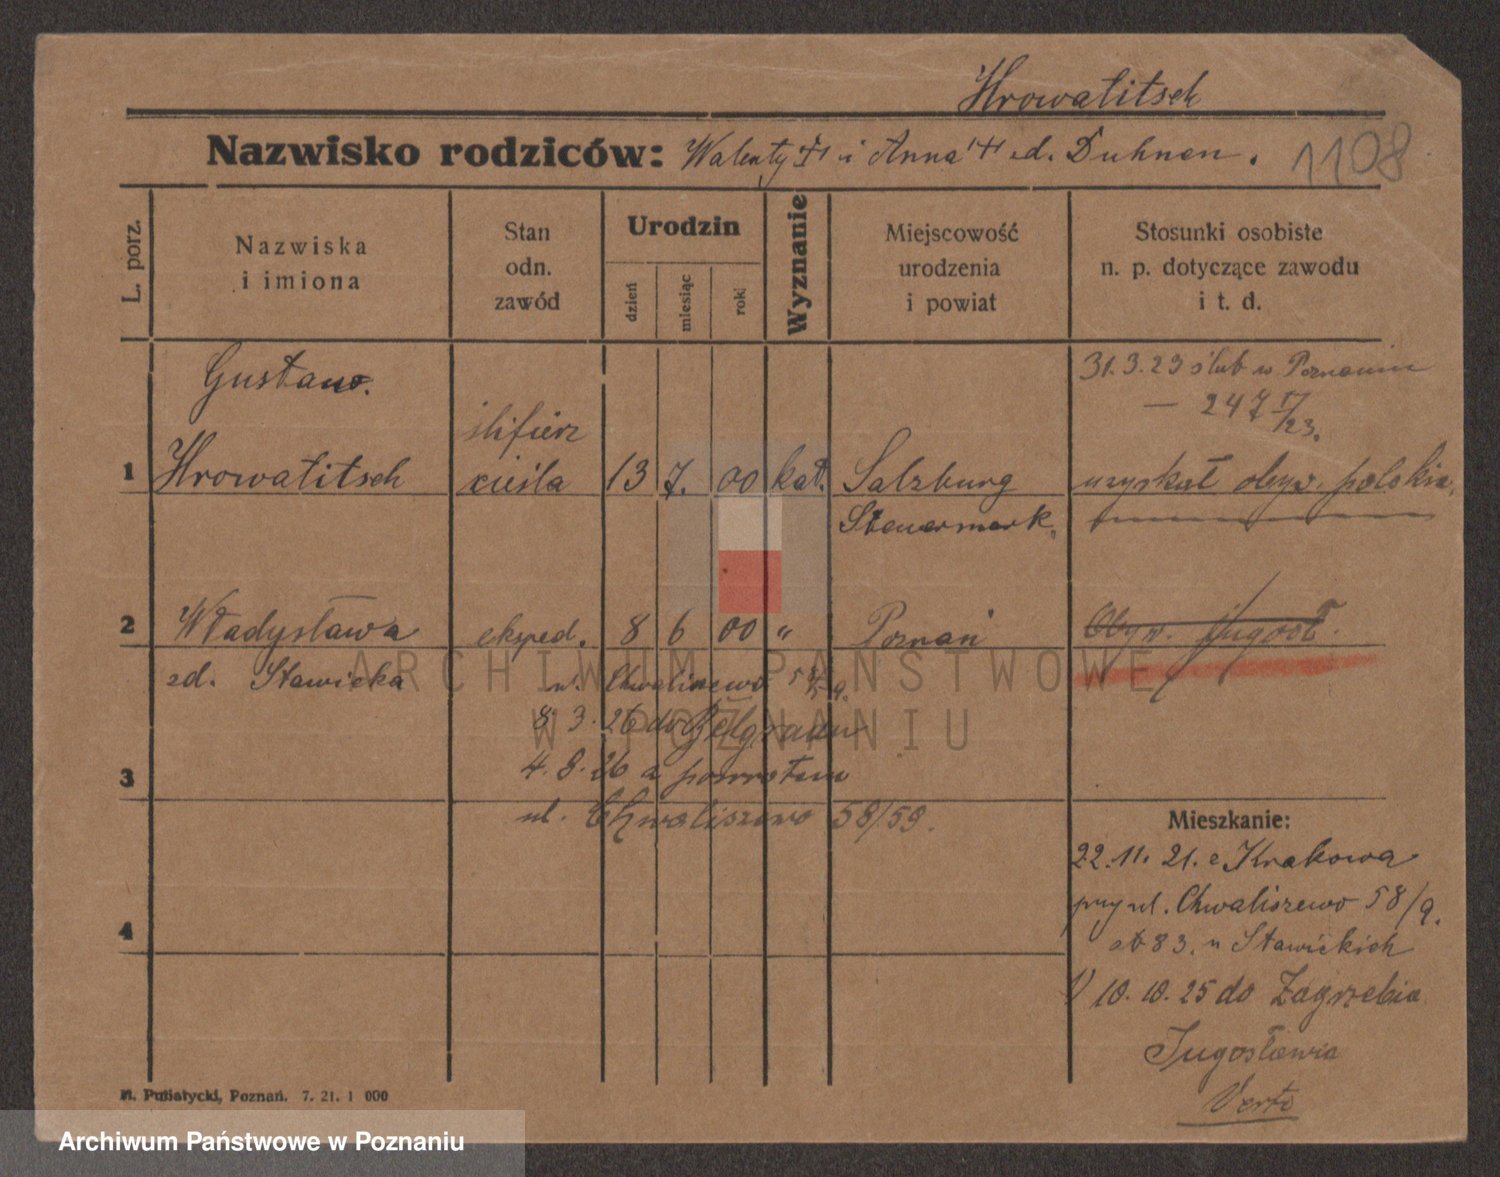 Hrowatitsch
Nazwisko rodziców: Walenty i Anna zd. Duhnen.
1108
L. porz.
Nazwiska
i imiona
Stan
odn.
zawód
Urodzin
dzień
miesiąc
rok
Wyznanie
Miejscowość
urodzenia
i powiat
Stosunki osobiste
n. p. dotyczące zawodu
i t. d.
Gustaw.
31.3.23 ślub w Poznaniu
— 247 /23.
ślifierz
1 Hrowatitsch cieśla 13 7. 00 kat. Salzburg uzyskał obyw. polskie.
Steuermark.
2 Władysława eksped. 8 6 00 " Poznań Obyw. jugosł.
zd. Stawicka ul. Chwaliszewo
8.3.26 do Belgradu
3 4.8.26 z powrotem
ul. Chwaliszewo 58/59.
4
Mieszkanie:
22.11.21. z Krakowa
przy ul. Chwaliszewo 58/9.
u Stawickich
10.10.25 do Zagrzebia
Jugosławia
Verte
ARCHIWUM PAŃSTWOWE
W POZNANIU
Putiatycki, Poznań. 7. 21. 1 000
Archiwum Państwowe w Poznaniu